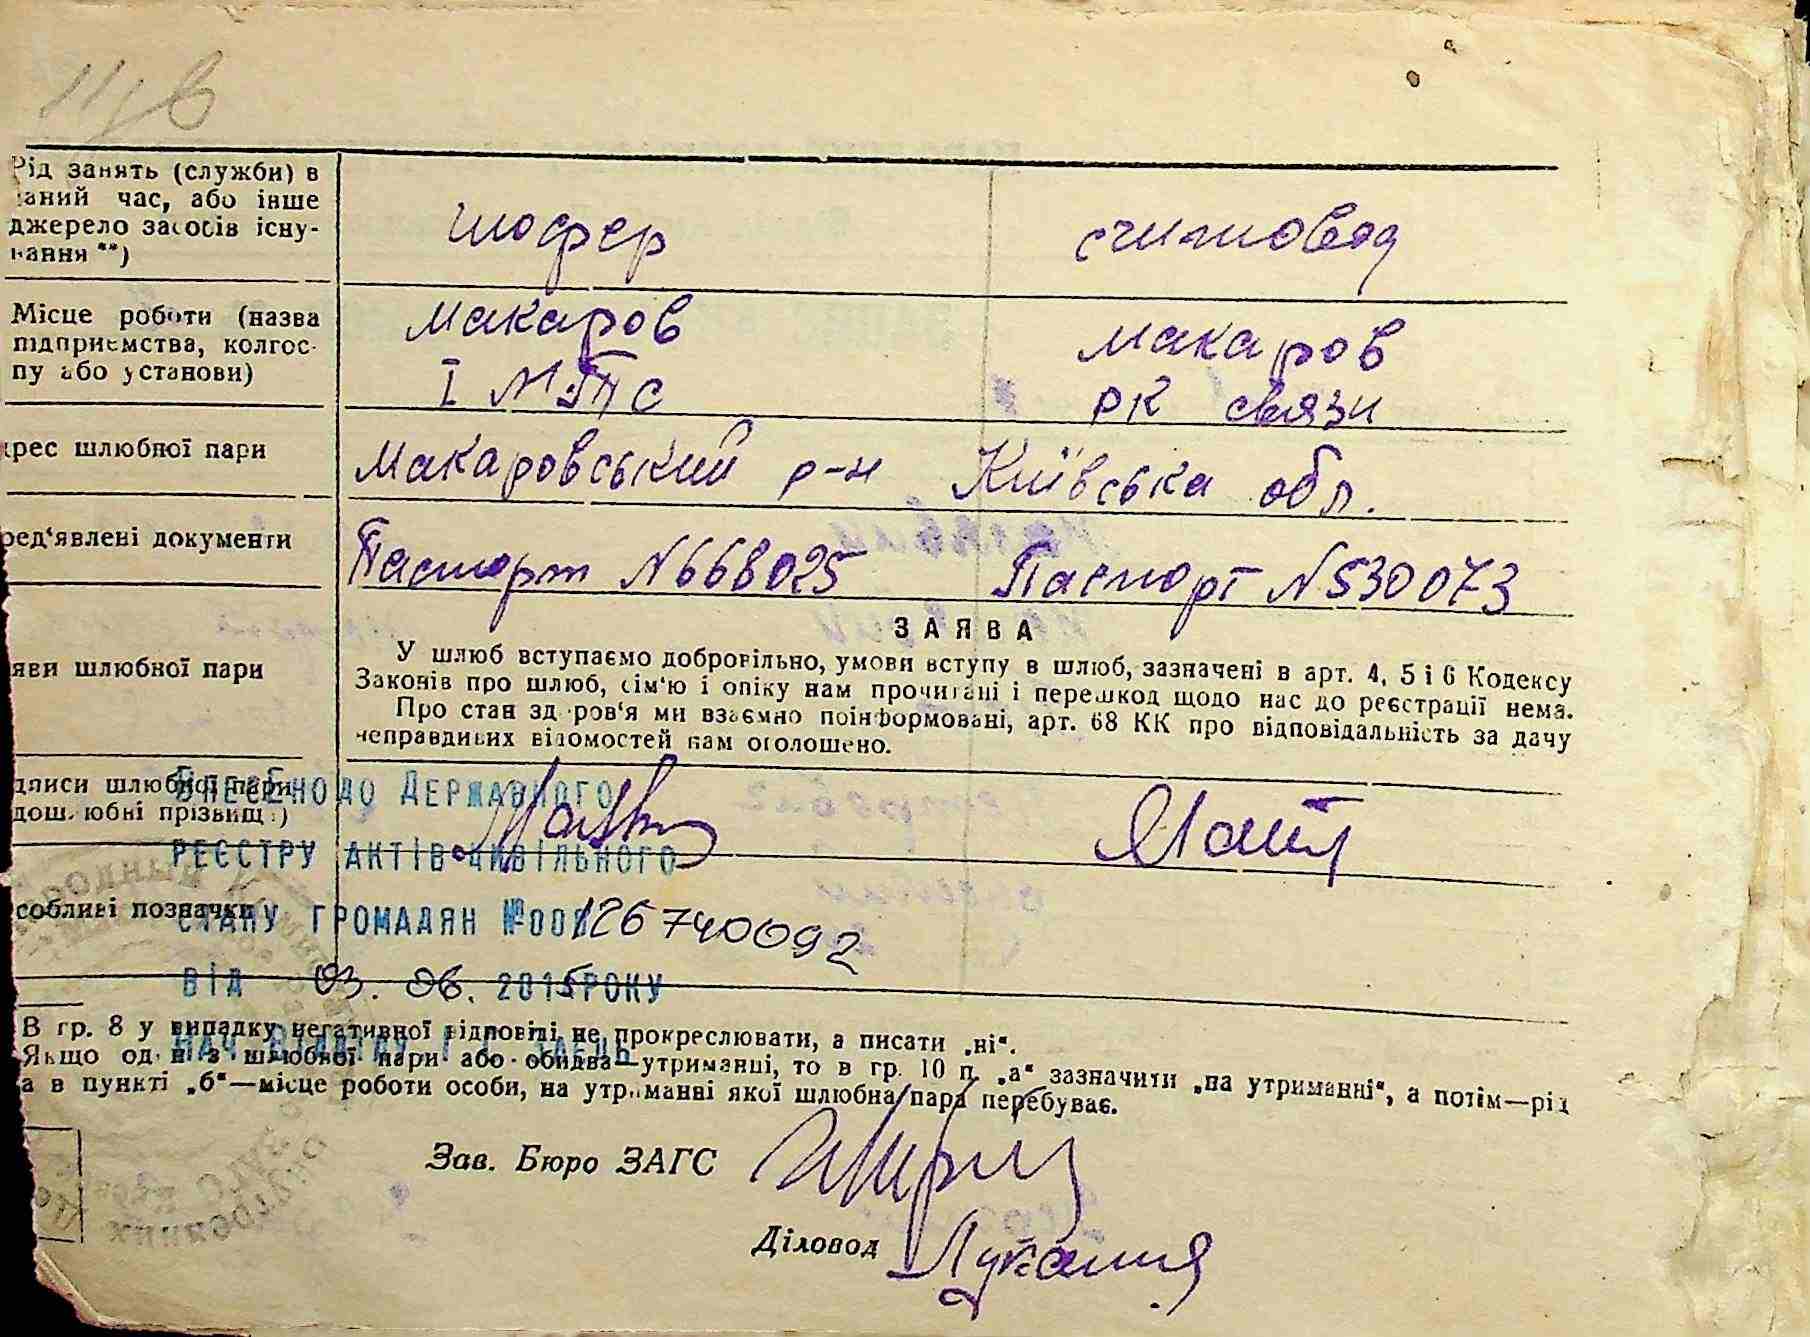 Рід занять (служби) в
даний час, або інше
джерело засобів існу-
вання **)
шофер
считовод
Місце роботи (назва
підприємства, колгос-
пу або установи)
Макаров
І МТС
Макаров
РК связи
дрес шлюбної пари
Макаровський р-н Київська обл.
ред‘явлені документи
Паспорт N668025
Паспорт N530073
яви шлюбної пари
ЗАЯВА
У шлюб вступаємо добровільно, умови вступу в шлюб, зазначені в арт. 4, 5 і 6 Кодексу
Законів про шлюб, сім‘ю і опіку нам прочитані і перешкод щодо нас до реєстрації нема.
Про стан здоров‘я ми взаємно поінформовані, арт. 68 КК про відповідальність за дачу
неправдивих відомостей нам оголошено.
дписи шлюбної пари
дошлюбні прізвища)
собливі позначки
Внесено до Державного
реєстру актів цивільного
стану громадян №00126740092
від 03.06.2015 року
В гр. 8 у випадку негативної відповіді не прокреслювати, а писати „ні“.
Якщо один з шлюбної пари або обидва—утриманці, то в гр. 10 п. „а“ зазначити „на утриманні“, а потім—рід
а в пункті „б“—місце роботи особи, на утриманні якої шлюбна пара перебуває.
Зав. Бюро ЗАГС
Діловод